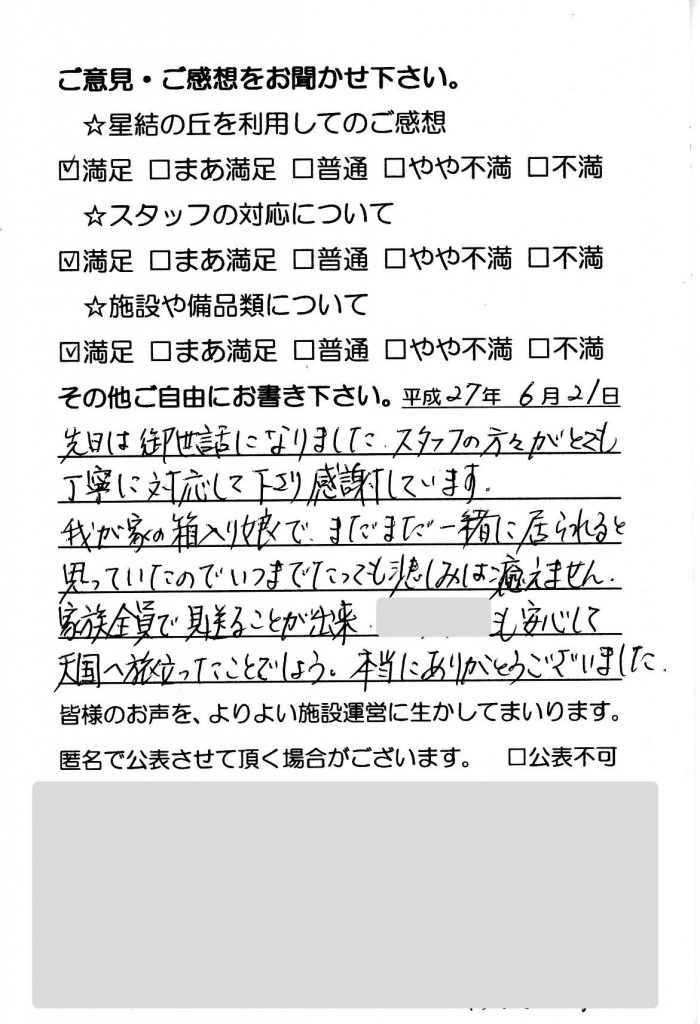 ご意見・ご感想をお聞かせ下さい。
☆星結の丘を利用してのご感想
☑満足 □まあ満足 □普通 □やや不満 □不満
☆スタッフの対応について
☑満足 □まあ満足 □普通 □やや不満 □不満
☆施設や備品類について
☑満足 □まあ満足 □普通 □やや不満 □不満
その他ご自由にお書き下さい。平成27年 6月21日
先日は御世話になりました.スタッフの方々がとても
丁寧に対応して下さり感謝しています.
我が家の箱入り娘で、まだまだ一緒に居られると
思っていたのでいつまでたっても悲しみは癒えません.
家族全員で見送ることが出来. も安心して
天国へ旅立ったことでしょう。本当にありがとうございました.
皆様のお声を、よりよい施設運営に生かしてまいります。
匿名で公表させて頂く場合がございます。 □公表不可